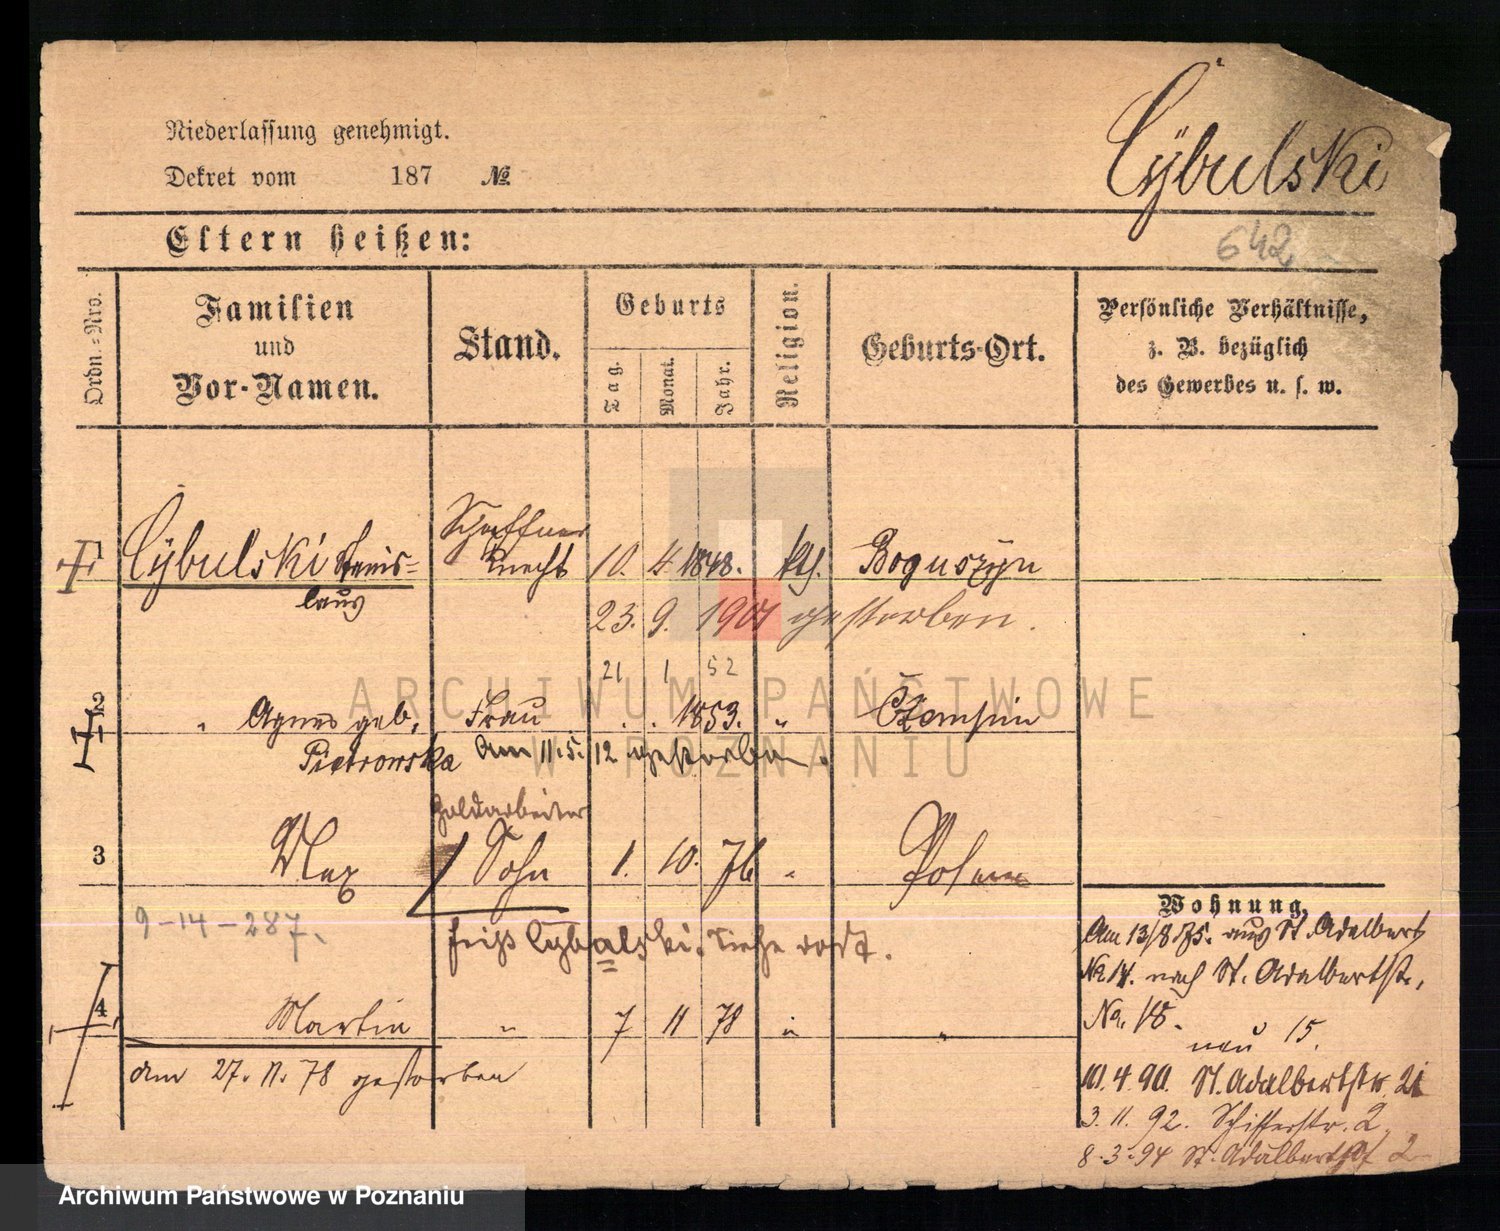 Niederlassung genehmigt.
Dekret vom 187 №
Cybulski
Eltern heißen:
642
Ordn.-Nro.
Familien und Vor-Namen.
Stand.
Geburts
Tag.
Monat.
Jahr.
Religion.
Geburts-Ort.
Persönliche Verhältnisse,
z. B. bezüglich
des Gewerbes u. s. w.
Schaffner
1 Cybulski Stanis= Knecht 10. 4. 1848. kth. Boguszyn
laus
23. 9. 1901 gestorben.
21 1 52
2 " Agnes geb. Frau . . 1853. " Czempin
Pietrowska am 11.5.12 gestorben.
Goldarbeiter
3 Max / Sohn 1. 10. 76 " Posen
9-14-287.
heißt Cybalski. Siehe dort.
4 Martin " 7 11 78 " "
am 27. 11. 78 gestorben
Wohnung.
Am 13/8.75. aus St. Adalbert
No 14. nach St. Adalbertstr.
No. 18.
neu 15.
4.90. St. Adalbertstr. 21
3. 11. 92. Schifferstr. 2.
8.3.94 St. Adalbertstr 2
ARCHIWUM PAŃSTWOWE
W POZNANIU
Archiwum Państwowe w Poznaniu